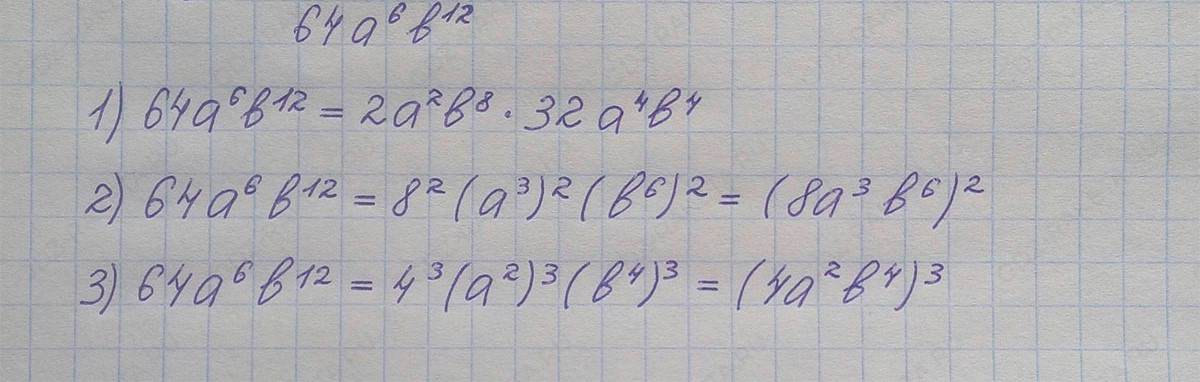 64a⁶b¹²
1) 64a⁶b¹² = 2a²b⁸ · 32a⁴b⁴
2) 64a⁶b¹² = 8²(a³)²(b⁶)² = (8a³b⁶)²
3) 64a⁶b¹² = 4³(a²)³(b⁴)³ = (4a²b⁴)³